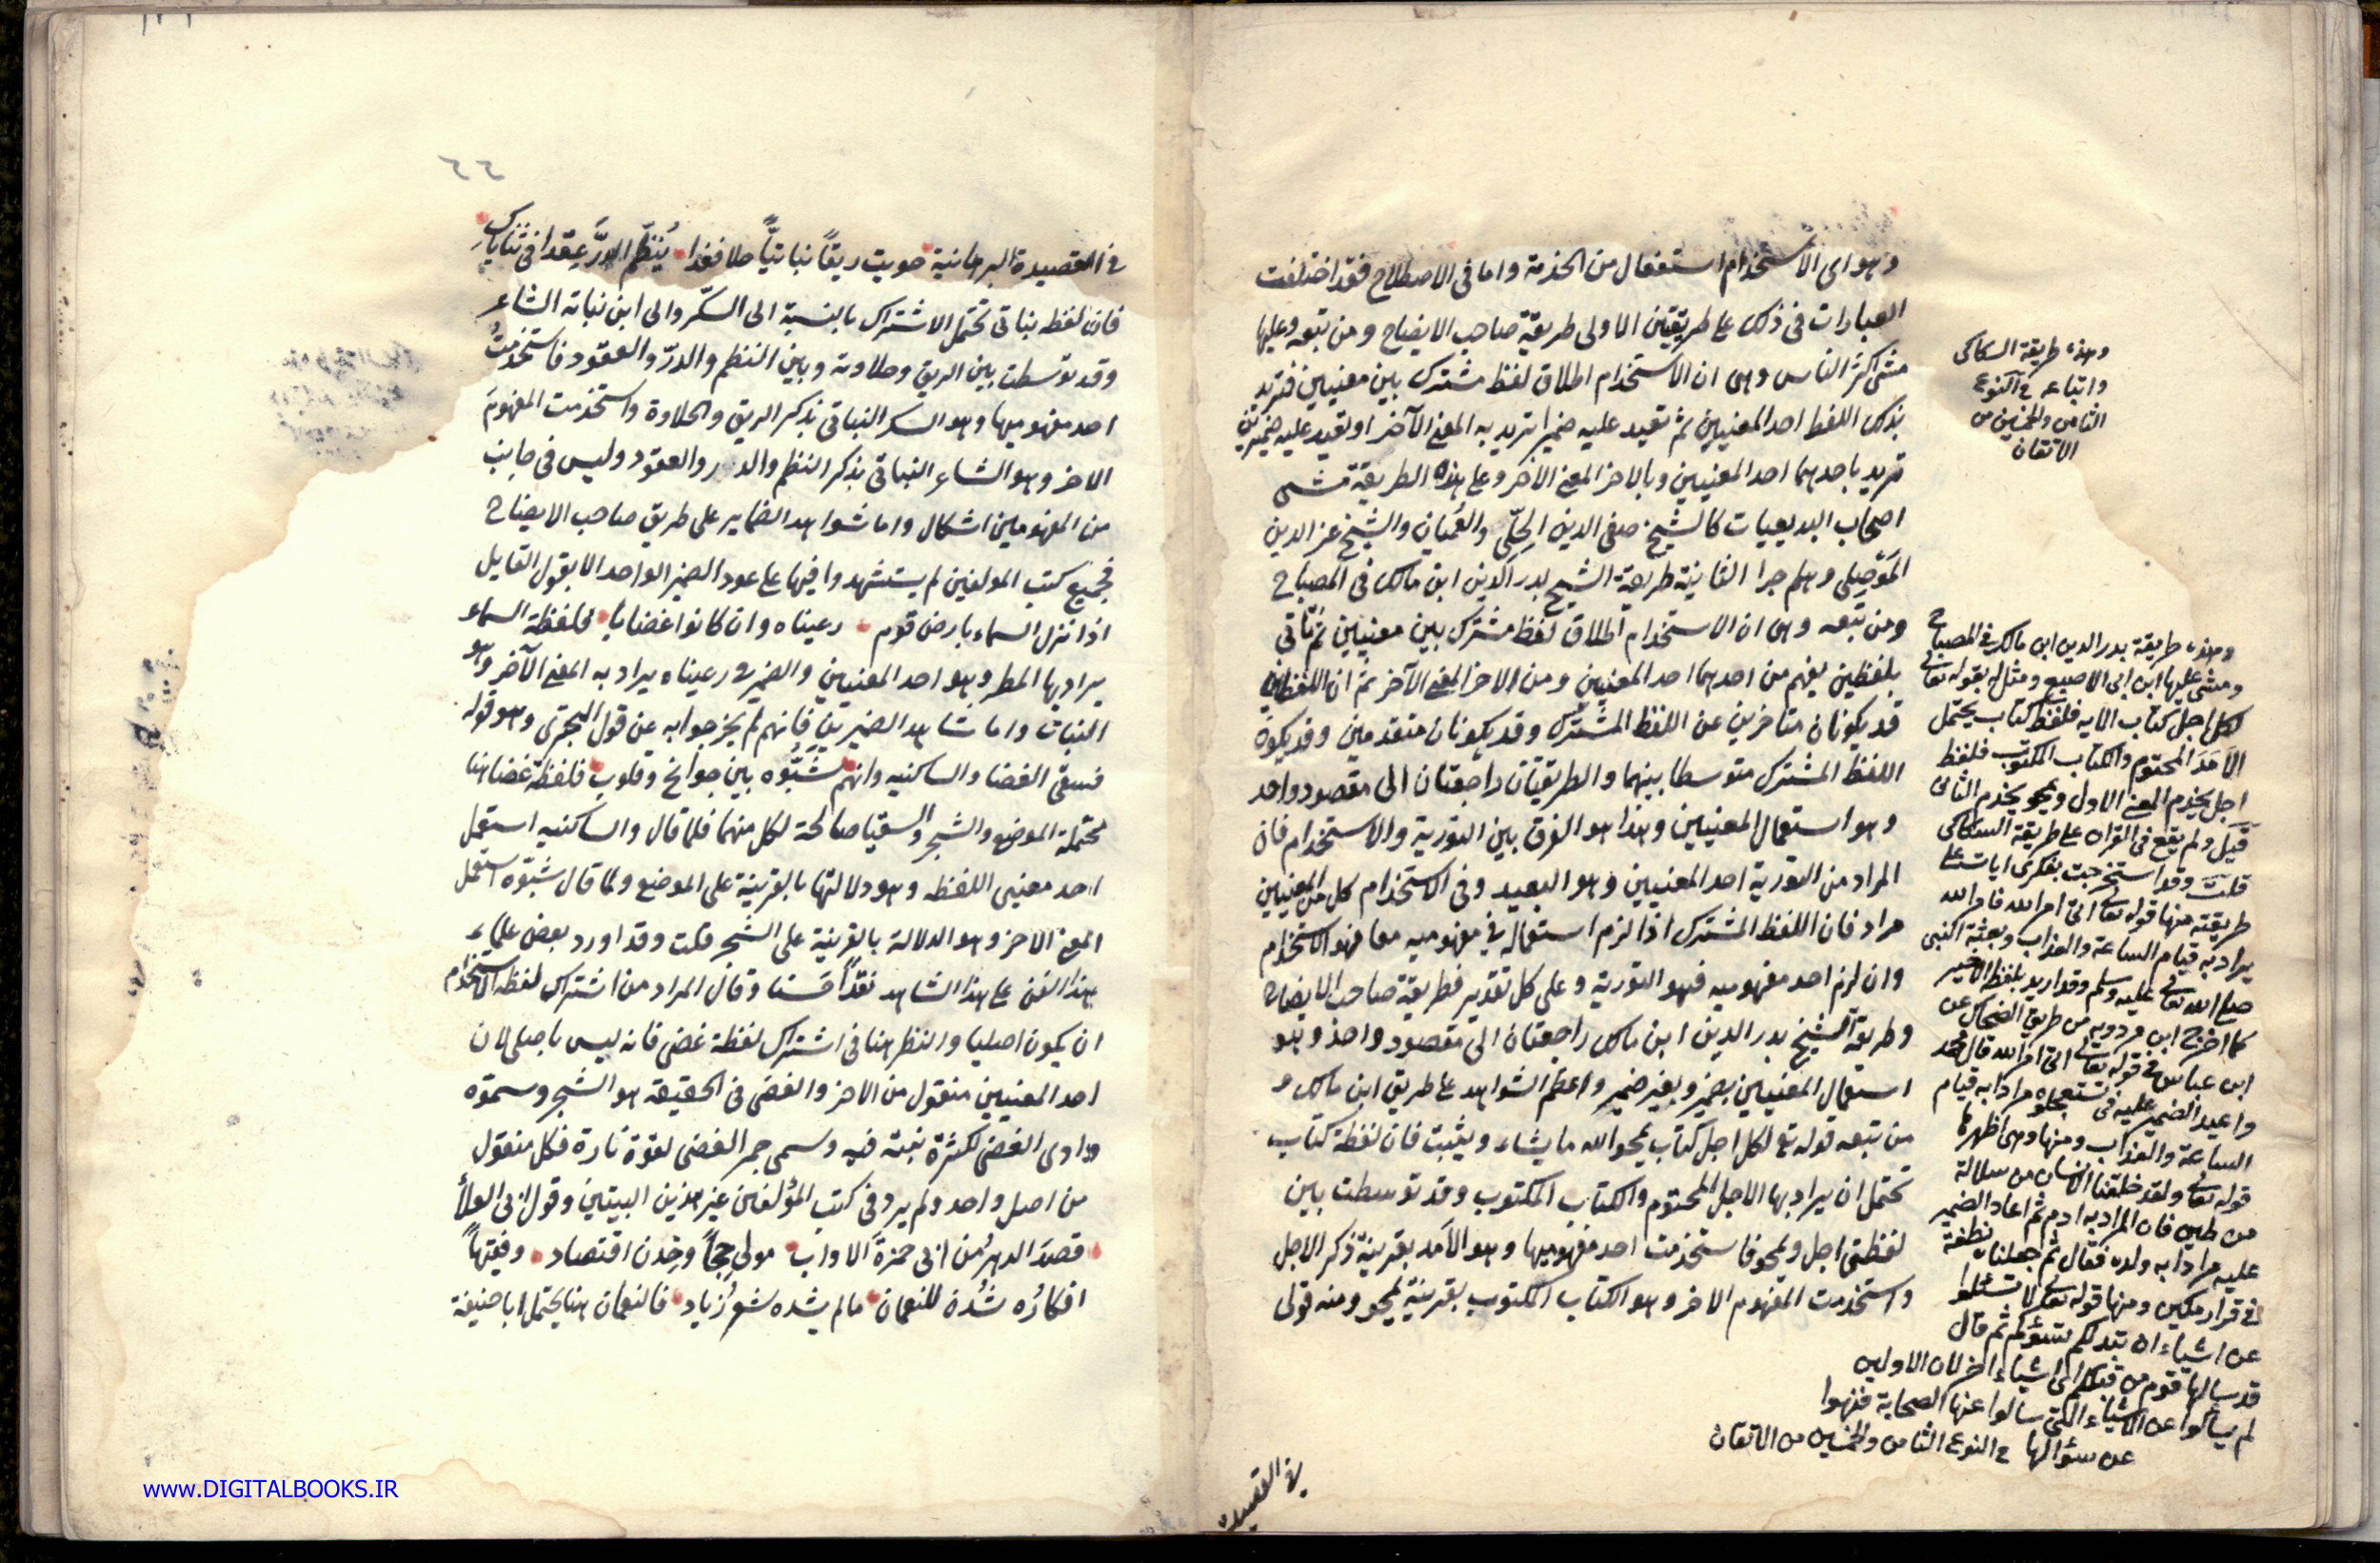 وهو اى الاستخدام استفعال من الخدمة واما فى الاصطلاح فقد اختلفت
العبارات فى ذلك على طريقتين الاولى طريقة صاحب الايضاح ومن تبعه وعليها
مشى اكثر الناس وهى ان الاستخدام اطلاق لفظ مشترك بين معنيين فتريد
بذلك اللفظ احد المعنيين ثم تعيد عليه ضميرا تريد به المعنى الآخر او تعيد عليه ضميرين
تريد باحدهما احد المعنيين وبالاخر المعنى الاخر وعلى هذه الطريقة مشى
اصحاب البديعيات كالشيخ صفى الدين الحلّى والعُميان والشيخ عز الدين
المَوْصِلى وهلم جرا الثانية طريقة الشيخ بدر الدين ابن مالك فى المصباح
ومن تبعه وهى ان الاستخدام اطلاق لفظ مشترك بين معنيين ثم تاتى
بلفظين يفهم من احدهما احد المعنيين ومن الاخر المعنى الآخر ثم ان اللفظين
قد يكونان متاخرين عن اللفظ المشترك وقد يكونان متقدمين وقد يكون
اللفظ المشترك متوسطا بينهما والطريقتان راجعتان الى مقصود واحد
وهو استعمال المعنيين وهذا هو الفرق بين التورية والاستخدام فان
المراد من التورية احد المعنيين وهو البعيد وفى الاستخدام كل من المعنيين
مراد فان اللفظ المشترك اذا لزم استعماله فى مفهوميه معا فهو الاستخدام
وان لزم احد مفهوميه فهو التورية وعلى كل تقدير فطريقة صاحب الايضاح
وطريقة الشيخ بدر الدين ابن مالك راجعتان الى مقصود واحد وهو
استعمال المعنيين بضمير وبغير ضمير واعظم الشواهد على طريق ابن مالك و
من تبعه قوله تع لكل اجل كتاب يمحو الله ما يشاء ويثبت فان لفظة كتاب
تحتمل ان يراد بها الاجل المحتوم والكتاب المكتوب وقد توسطت بين
لفظتى اجل ويمحو فاستخدمت احد مفهوميها وهو الأمد بقرينة ذكر الاجل
واستخدمت المفهوم الاخر وهو الكتاب المكتوب بقرينة يمحو ومنه قولى
فى القصيد
وهذه طريقة السكاكى
واتباعه فى النوع
الثامن والخمسين من
الاتقان
وهذه طريقة بدر الدين ابن مالك فى المصباح
ومشى عليها ابن ابى الاصبع ومثل له بقوله تعالى
لكل اجل كتاب الآيه فلفظ كتاب يحتمل
الأمد المحتوم والكتاب المكتوب فلفظ
اجل يخدم المعنى الاول ويمحو يخدم الثانى
قيل ولم يقع فى القران على طريقة السكاكى
قلت وقد استخرجت بفكرى ايات على
طريقته منها قوله تعالى اتى امر الله فامر الله
يراد به قيام الساعة والعذاب وبعثة النبى
صلى الله تعالى عليه وسلم وقد اريد بلفظ الاخير
كما اخرج ابن مردويه من طريق الضحاك عن
ابن عباس فى قوله تعالى اتى امر الله قال محمد
واعيد الضمير عليه فى تستعجلوه مرادا به قيام
الساعة والعذاب ومنها وهى اظهرها
قوله تعالى ولقد خلقنا الانسان من سلالة
من طين فان المراد به ادم ثم اعاد الضمير
عليه مرادا به ولده فقال ثم جعلناه نطفة
فى قرار مكين ومنها قوله تعالى لا تسئلوا
عن اشياء ان تبد لكم تسؤكم ثم قال
قد سالها قوم من قبلكم اى اشياء اخر لان الاولين
لم يسألوا عن الاشياء التى سالوا عنها الصحابة فنهوا
عن سؤالها فى النوع الثامن والخمسين من الاتقان
٦٤
فى القصيدة البرهانية حويت ريقاً نباتيّاً حلا فغدا يُنَظّم الدرَّ عِقدا فى ثناياكِ
فان لفظه نباتى تحتمل الاشتراك بالنسبة الى السكّر والى ابن نباته الشاعر
وقد توسطت بين الريق وحلاوته وبين النظم والدرّ والعقود فاستخدمتُ
احد مفهوميها وهو السكر النباتى بذكر الريق والحلاوة واستخدمت المفهومَ
الاخر وهو الشاعر النباتى بذكر النظم والدر والعقود وليس فى جانب
من المفهومين اشكال واما شواهد الضماير على طريق صاحب الايضاح
فجميع كتب المولفين لم يستشهدوا فيها على عود الضمير الواحد الا بقول القايل
اذا نزل السماء بارض قوم رعيناه وان كانوا غضابا فلفظة السماء
يراد بها المطر وهو احد المعنيين والضمير فى رعيناه يراد به المعنى الآخر وهو
النبات واما شاهد الضميرين فانهم لم يخرجوا به عن قول البحترى وهو قوله
فسقى الغضا والساكنيه وانهم شَبُّوه بين جوانح وقلوب فلفظة غضا هنا
محتملة الموضع والشجر والسقيا صالحة لكل منهما فلما قال والساكنيه استعمل
احد معنيى اللفظه وهو دلالتها بالقرينة على الموضع ولما قال شبّوه استعمل
المعنى الاخر وهو الدلالة بالقرينة على الشجر قلت وقد اورد بعض علماء
هذا الفن على هذا الشاهد نقداً حَسَنا وقال المراد من اشتراك لفظه الاستخدام
ان يكون اصليا والنظر هنا فى اشتراك لفظة غضى فانه ليس باصلى لان
احد المعنيين منقول من الاخر والغضى فى الحقيقه هو الشجر وسموّه
وادى الغضى لكثرة نبته فيه وسمى جمر الغضى لقوة ناره فكل منقول
من اصل واحد ولم يرد فى كتب المؤلفين غير هذين البيتين وقول ابى العلأ
قصدَ الدهرُ من ابى حمزةَ الاواب مولى حِجىً وخِدن اقتصاد وفقيهاً
افكارُه شدْن للنعمان مالم يشده شعرُ زياد فالنعمان هنا يحتمل ابا حنيفة
www.DIGITALBOOKS.IR